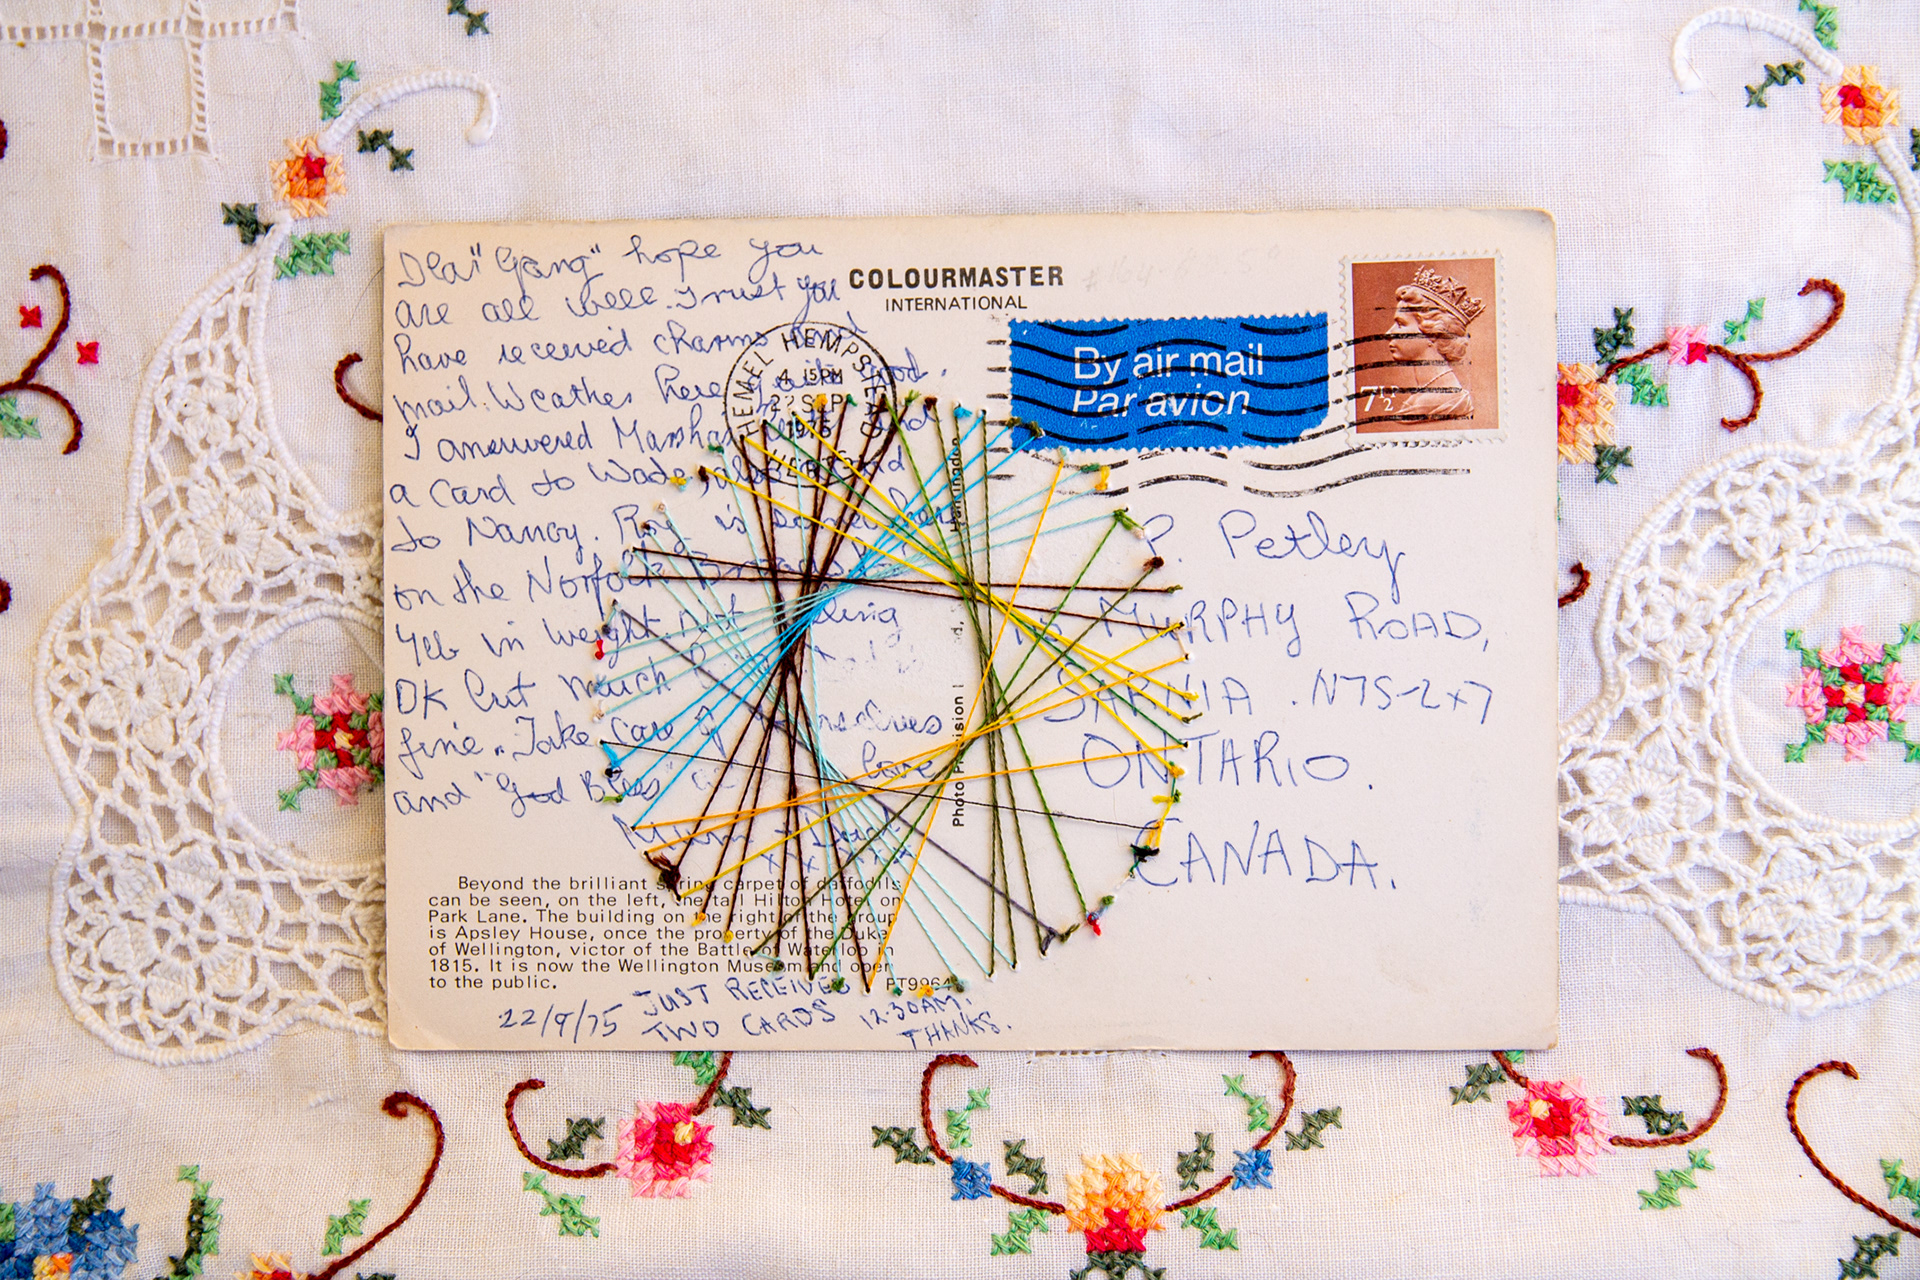 Dear "Gang" hope you
are all well. Trust you
have received charms and
mail. Weather here quite good.
I answered Marsha's and
a card to Wade, also card
to Nancy. Roy is somewhere
on the Norfolk Broads
4lb in weight. Not feeling
OK but much
fine. Take care of yourselves
and "God Bless" love
Mum + Dad
x x x x x
Beyond the brilliant spring carpet of daffodils
can be seen, on the left, the tall Hilton Hotel on
Park Lane. The building on the right of the group
is Apsley House, once the property of the Duke
of Wellington, victor of the Battle of Waterloo in
1815. It is now the Wellington Museum and open
to the public.
PT9964
22/9/75 JUST RECEIVED
TWO CARDS 12.30AM.
THANKS.
COLOURMASTER
INTERNATIONAL
HEMEL HEMPSTEAD
4 15PM
22 SEP
1975
HERTS
Photo Precision
By air mail
Par avion
7½
P. Petley
MURPHY ROAD,
SARNIA. N7S-2X7
ONTARIO.
CANADA.